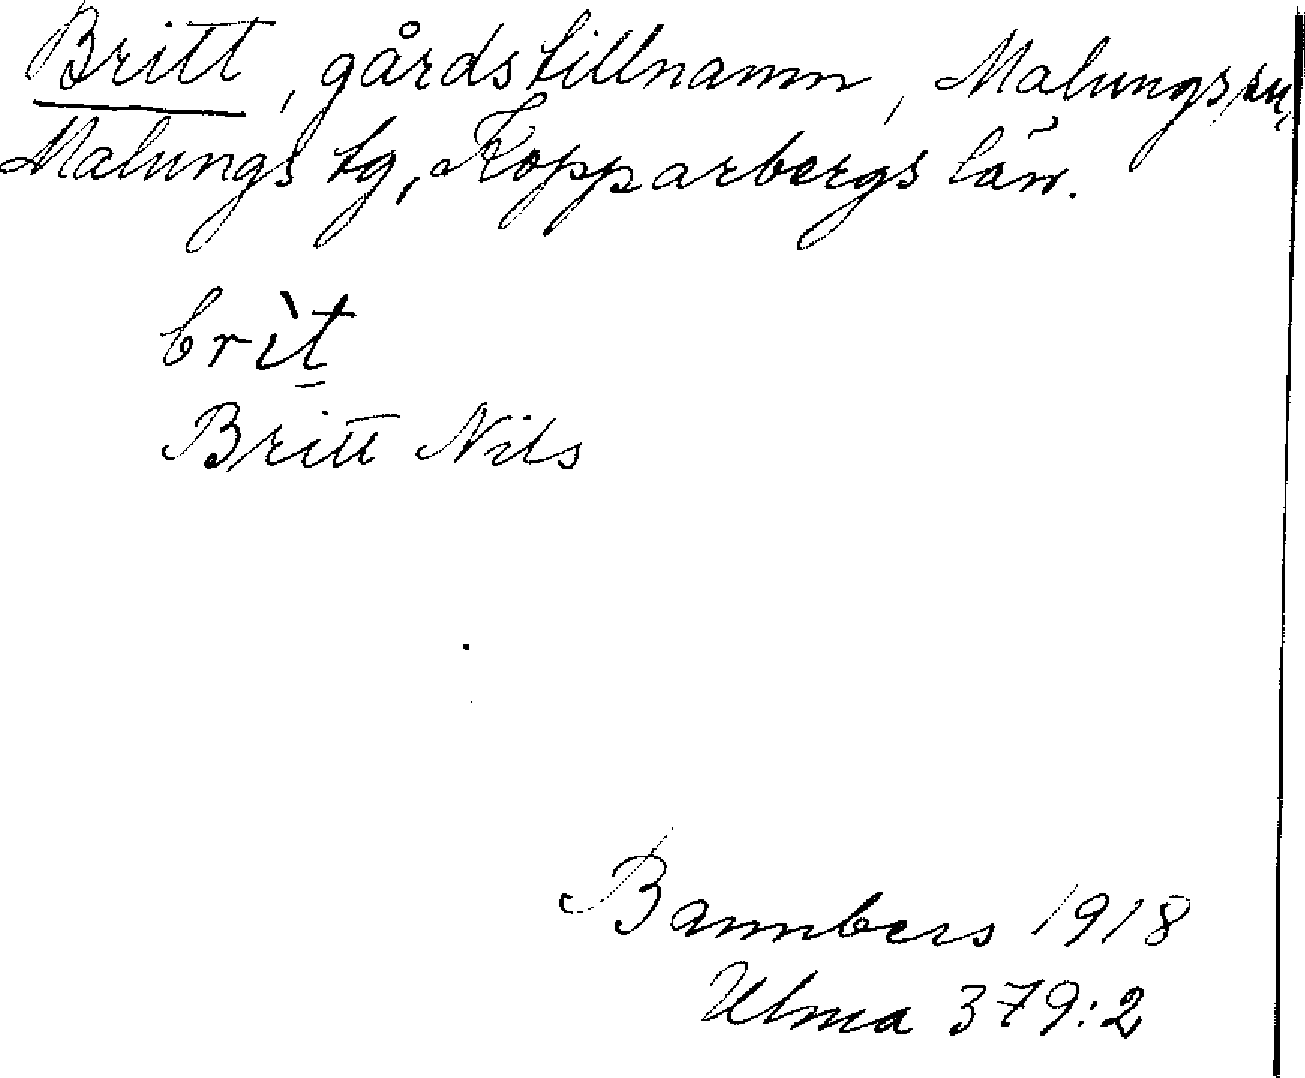 Britt, gårdstillnamn, Malungs sn,
Malungs tg, Kopparbergs län.
brìt
Britt Nils
Bannbers 1918
Ulma 379:2